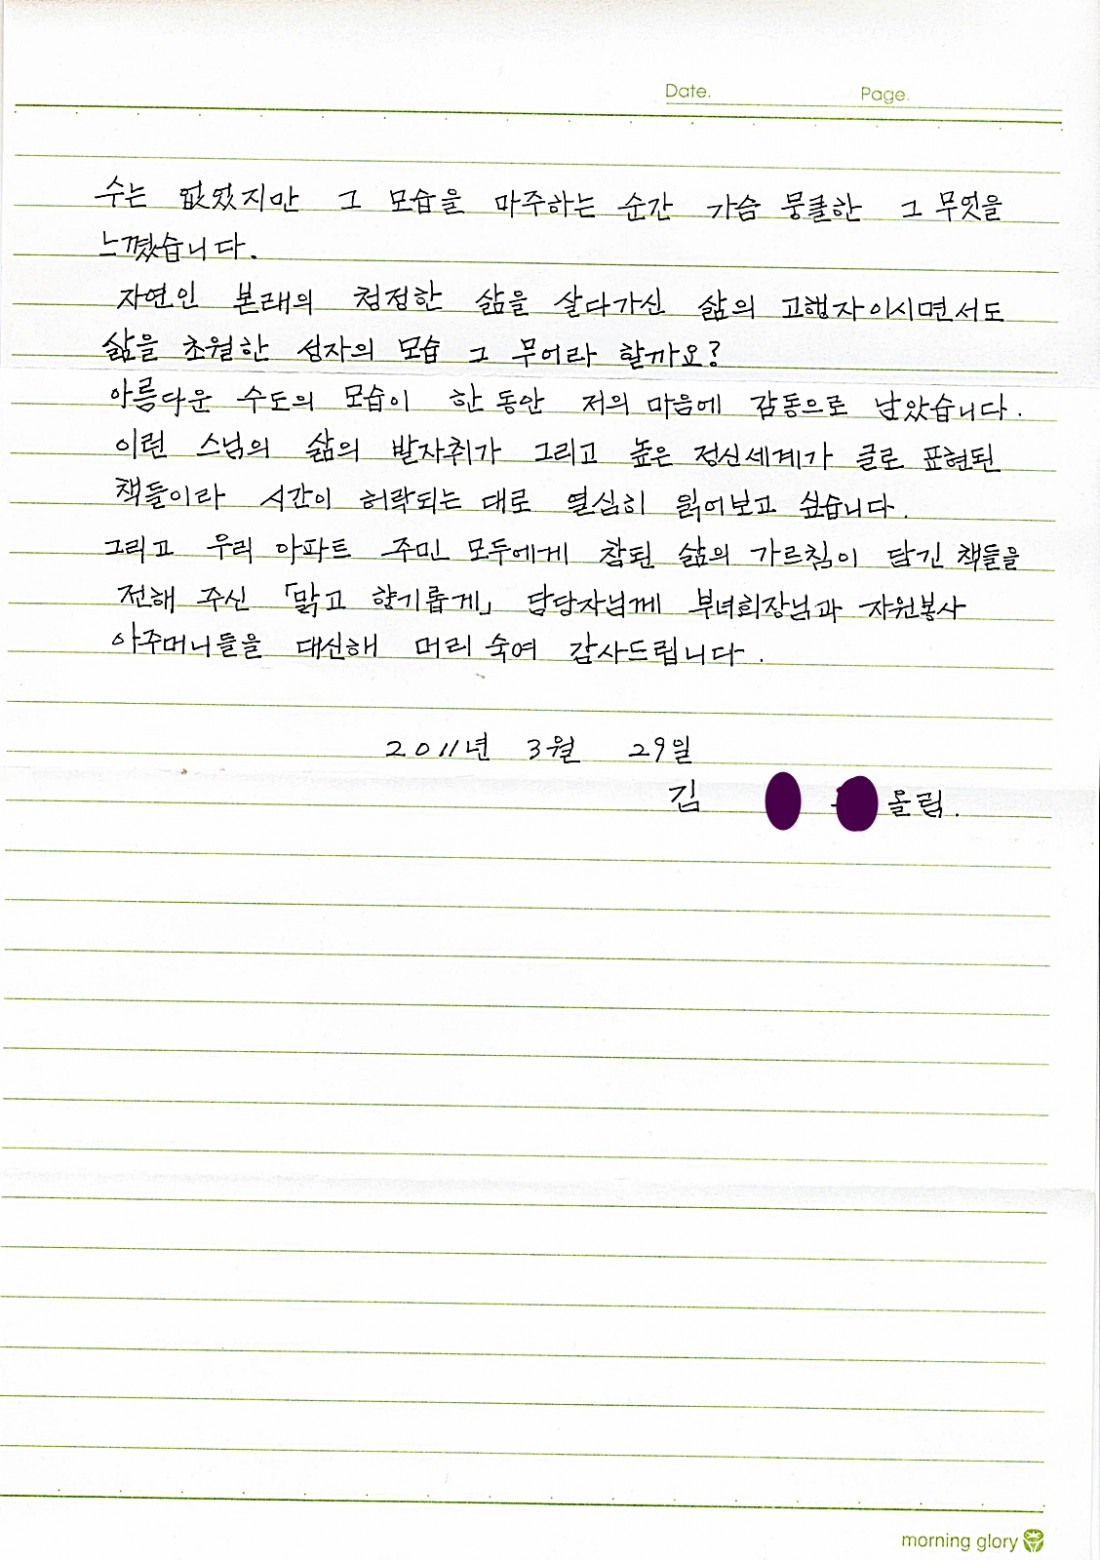 Date. Page.
수는 없었지만 그 모습을 마주하는 순간 가슴 뭉클한 그 무엇을
느꼈습니다.
자연인 본래의 청정한 삶을 살다가신 삶의 고행자이시면서도
삶을 초월한 성자의 모습 그 무어라 할까요?
아름다운 수도의 모습이 한 동안 저의 마음에 감동으로 남았습니다.
이런 스님의 삶의 발자취가 그리고 높은 정신세계가 글로 표현된
책들이라 시간이 허락되는 대로 열심히 읽어보고 싶습니다.
그리고 우리 아파트 주민 모두에게 참된 삶의 가르침이 담긴 책들을
전해 주신 「맑고 향기롭게」 담당자님께 부녀회장님과 자원봉사
아주머니들을 대신해 머리 숙여 감사드립니다.
2011년 3월 29일
김 올림.
morning glory